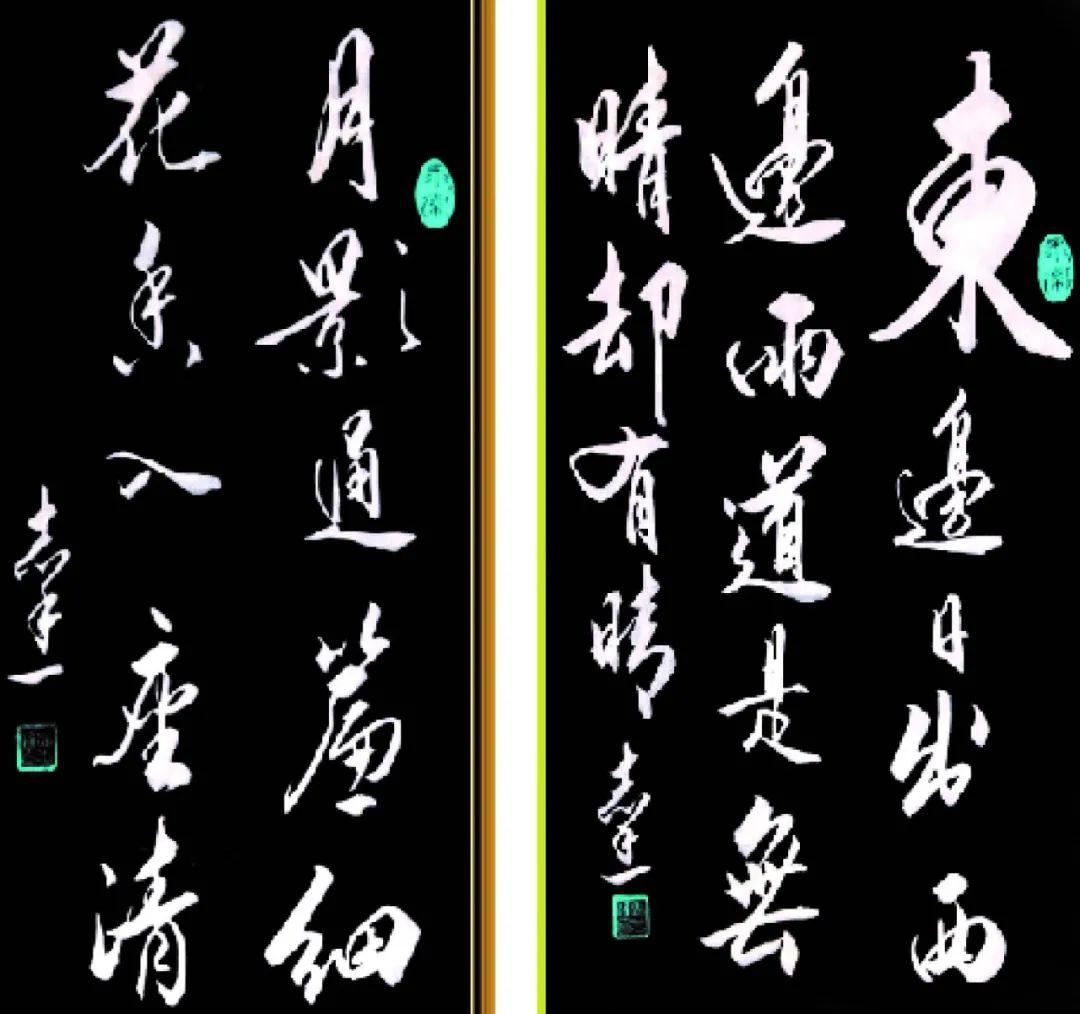 東邊日出西
邊雨道是無
晴却有晴
月影通簾細
花香入座清